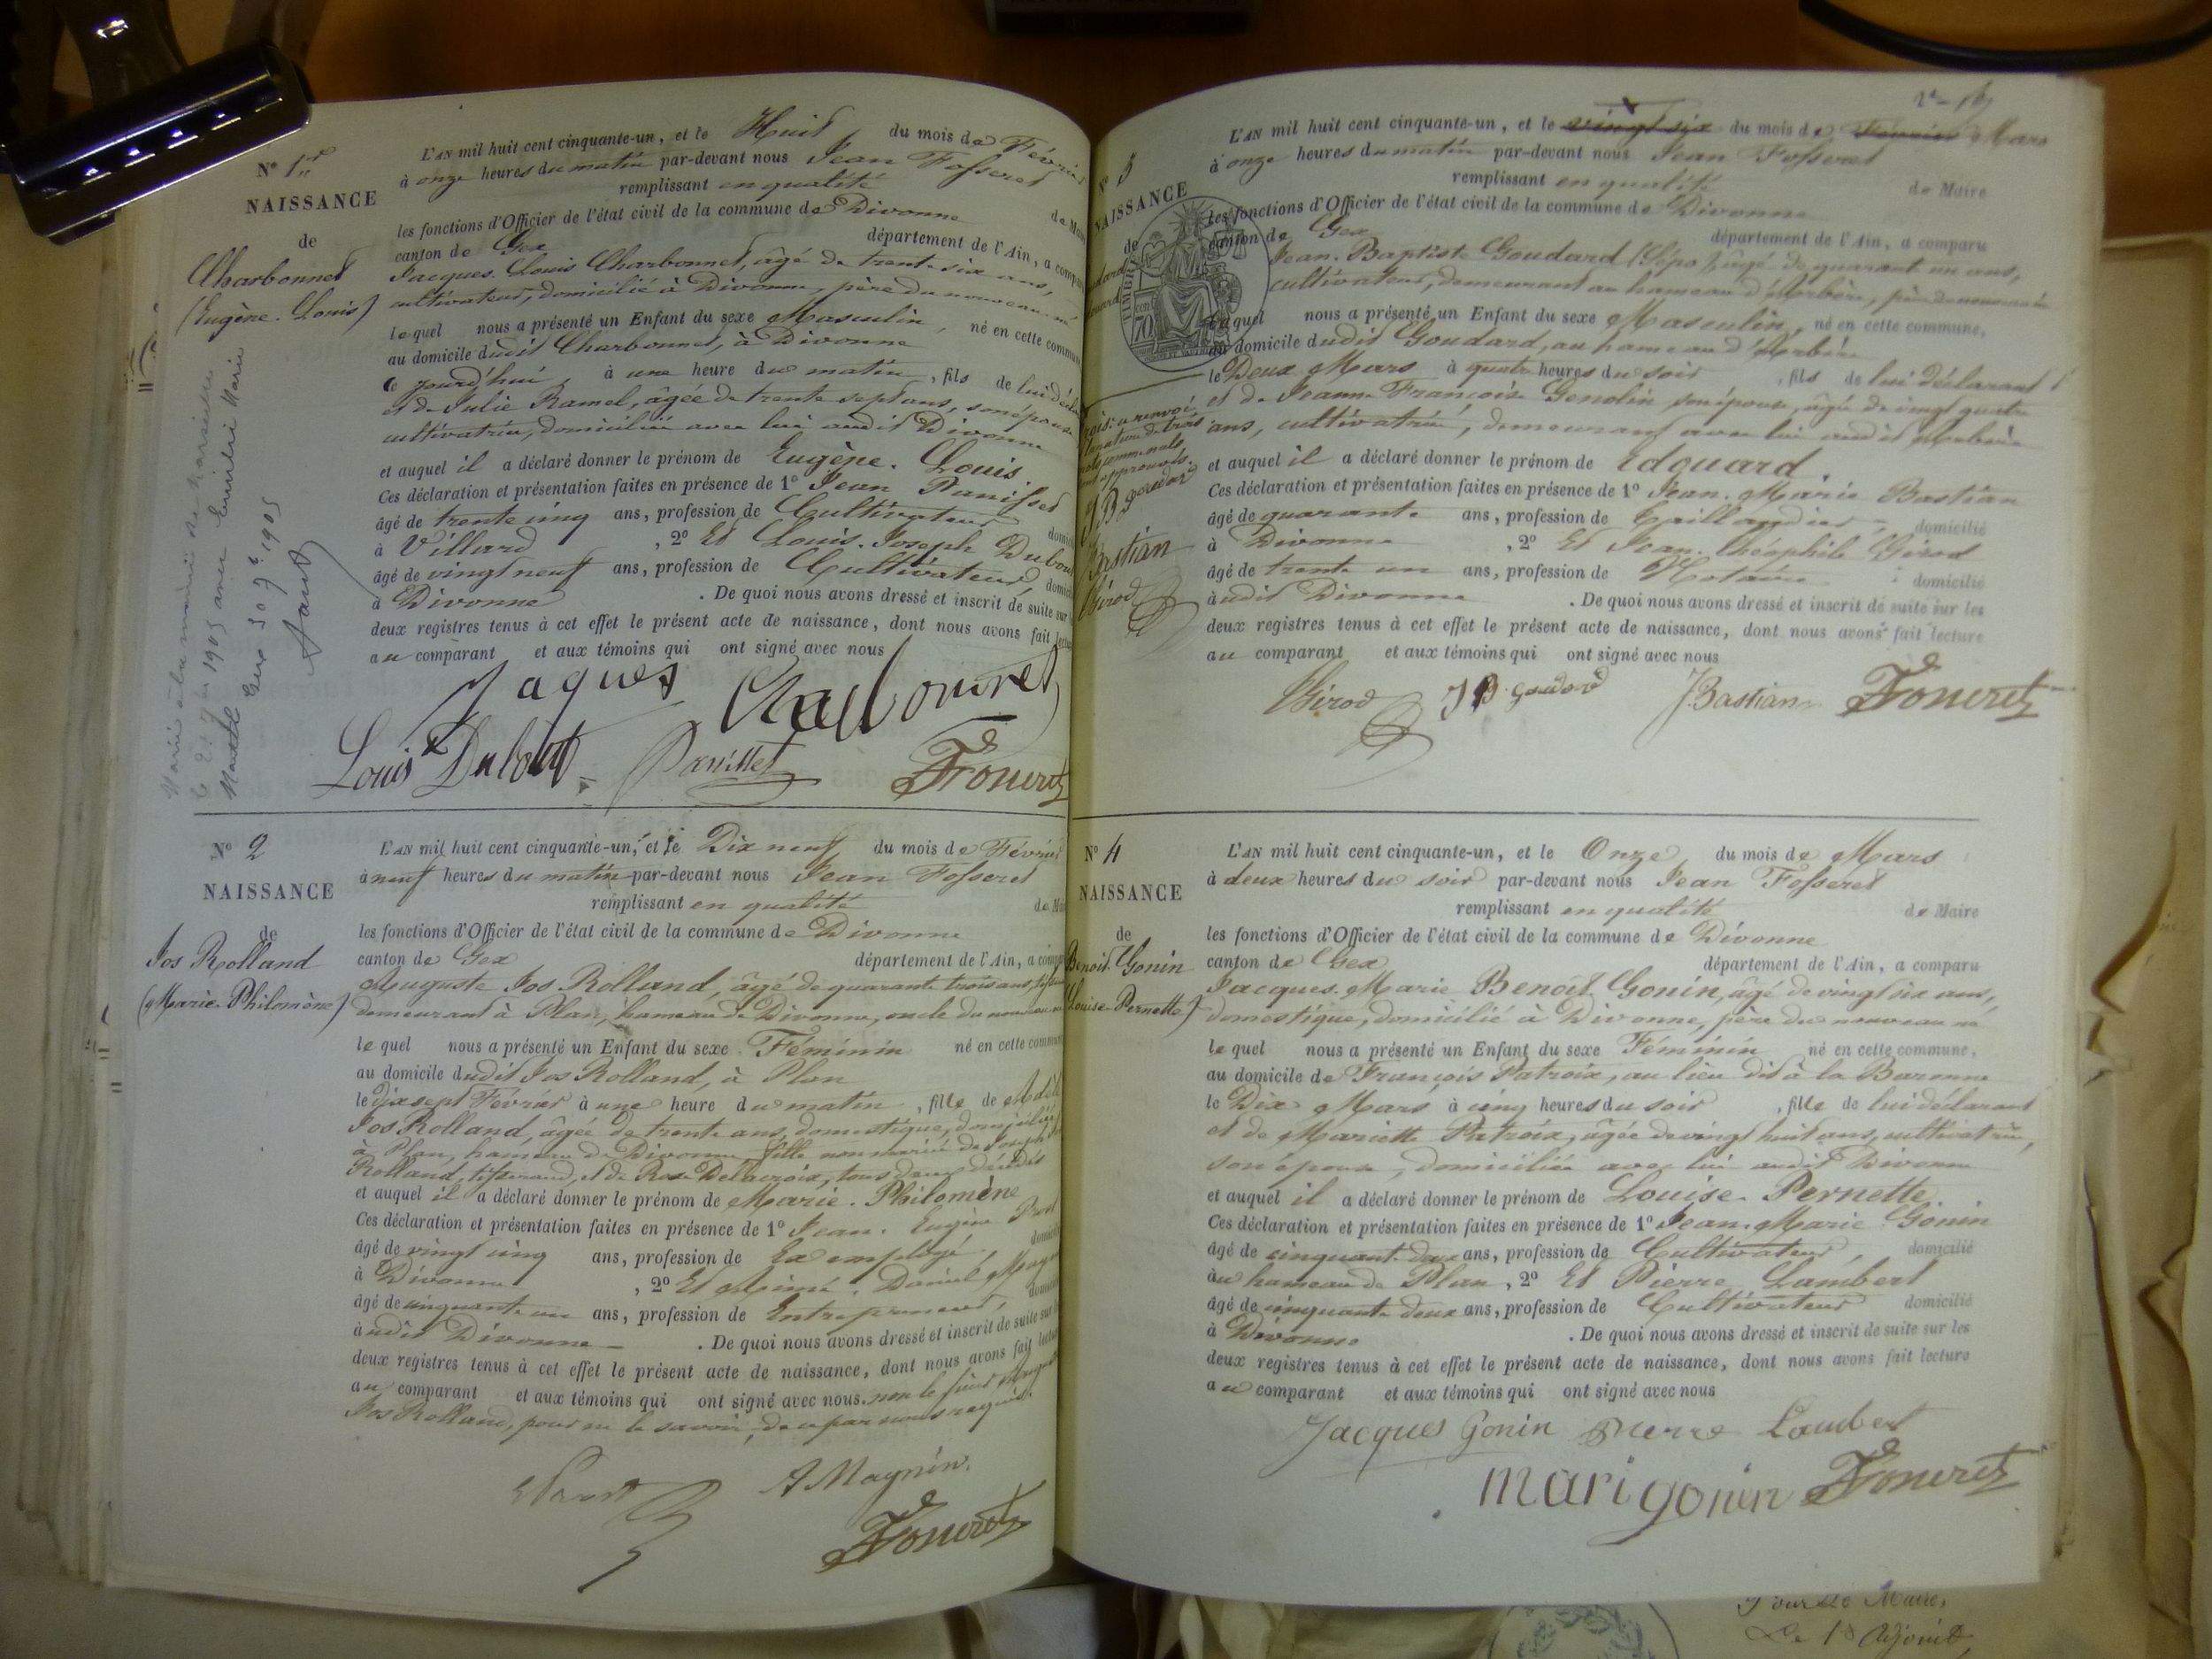 N° 1er
NAISSANCE
de
Charbonnet
(Eugène. Louis)
L'AN mil huit cent cinquante-un, et le Huit du mois de Février
à onze heures du matin par-devant nous Jean Fosseret
remplissant en qualité de Maire
les fonctions d'Officier de l'état civil de la commune de Divonne
canton de Gex département de l'Ain, a comparu
Jacques. Louis Charbonnet, âgé de trente six ans,
cultivateur, domicilié à Divonne, père du nouveau né
lequel nous a présenté un Enfant du sexe Masculin, né en cette commune
au domicile dudit Charbonnet, à Divonne
ce jourd'hui, à une heure du matin, fils de lui déclarant
et de Julie Ramel, âgée de trente sept ans, son épouse
cultivatrice, domiciliée avec lui audit Divonne
et auquel il a déclaré donner le prénom de Eugène. Louis.
Ces déclaration et présentation faites en présence de 1° Jean Panisset
âgé de trente cinq ans, profession de Cultivateur
à Villard, 2° Et Louis. Joseph Dubout
âgé de vingt neuf ans, profession de Cultivateur,
à Divonne. De quoi nous avons dressé et inscrit de suite sur
deux registres tenus à cet effet le présent acte de naissance, dont nous avons fait lecture
au comparant et aux témoins qui ont signé avec nous
Jaques Charbonnet
Louis Dubout Panisset Fosseret
Marié à la mairie de
le 1905 avec Marie
1905
N° 2
NAISSANCE
de
Jos Rolland
(Marie. Philomène)
L'AN mil huit cent cinquante-un, et le Dix neuf du mois de Février
à neuf heures du matin par-devant nous Jean Fosseret
remplissant en qualité de Maire
les fonctions d'Officier de l'état civil de la commune de Divonne
canton de Gex département de l'Ain, a comparu
Auguste Jos Rolland, âgé de quarante trois ans,
demeurant à Plan, hameau de Divonne, oncle du nouveau né
lequel nous a présenté un Enfant du sexe Féminin né en cette commune
au domicile dudit Jos Rolland, à Plan
le dix sept Février à une heure du matin, fille de
Jos Rolland, âgée de trente ans, domestique, domiciliée
à Plan, hameau de Divonne, fille non mariée de Joseph Jos
Rolland, tisserand, et de Rose Delacroix, tous deux décédés
et auquel il a déclaré donner le prénom de Marie. Philomène
Ces déclaration et présentation faites en présence de 1° Jean. Eugène
âgé de vingt cinq ans, profession de Ex employé,
à Divonne, 2° Et Aimé. Daniel
âgé de cinquante un ans, profession de Entrepreneur,
audit Divonne. De quoi nous avons dressé et inscrit de suite sur
deux registres tenus à cet effet le présent acte de naissance, dont nous avons fait lecture
au comparant et aux témoins qui ont signé avec nous. non le sieur Auguste
Jos Rolland, pour ne le savoir, de ce par nous requis.
A Magnin.
Fosseret
N° 3
NAISSANCE
de
TIMBRE
70
L'AN mil huit cent cinquante-un, et le vingt six du mois de Février Mars
à onze heures du matin par-devant nous Jean Fosseret
remplissant en qualité de Maire
les fonctions d'Officier de l'état civil de la commune de Divonne
canton de Gex département de l'Ain, a comparu
Jean. Baptiste Goudard âgé de quarant un ans,
cultivateur, demeurant au hameau d'Arbère, père du nouveau né
lequel nous a présenté un Enfant du sexe Masculin, né en cette commune,
au domicile dudit Goudard, au hameau d'Arbère
le Deux Mars à quatre heures du soir, fils de lui déclarant
et de Jeanne Françoise Genolin son épouse, âgée de vingt quatre
ans, cultivatrice, demeurant avec lui audit Arbère
et auquel il a déclaré donner le prénom de Edouard.
Ces déclaration et présentation faites en présence de 1° Jean. Marie Bastian
âgé de quarante ans, profession de Taillandier, domicilié
à Divonne, 2° Et Jean. Théophile Girod
âgé de trente un ans, profession de Notaire domicilié
audit Divonne. De quoi nous avons dressé et inscrit de suite sur les
deux registres tenus à cet effet le présent acte de naissance, dont nous avons fait lecture
au comparant et aux témoins qui ont signé avec nous
Girod J B. Goudard J. Bastian Fosseret
J. B goudard
Bastian
Girod
N° 4
NAISSANCE
de
Benoit. Gonin
(Louise. Pernette)
L'AN mil huit cent cinquante-un, et le Onze du mois de Mars
à deux heures du soir par-devant nous Jean Fosseret
remplissant en qualité de Maire
les fonctions d'Officier de l'état civil de la commune de Divonne
canton de Gex département de l'Ain, a comparu
Jacques. Marie Benoit Gonin, âgé de vingt six ans,
domestique, domicilié à Divonne, père du nouveau né
lequel nous a présenté un Enfant du sexe Féminin né en cette commune,
au domicile de François Patroix, au lieu dit à la Baronne
le Dix Mars à cinq heures du soir, fille de lui déclarant
et de Mariette Patroix, âgée de vingt huit ans, cultivatrice,
son épouse, domiciliée avec lui audit Divonne
et auquel il a déclaré donner le prénom de Louise. Pernette.
Ces déclaration et présentation faites en présence de 1° Jean. Marie Gonin
âgé de cinquante deux ans, profession de Cultivateur, domicilié
au hameau de Plan, 2° Et Pierre Lambert
âgé de cinquante deux ans, profession de Cultivateur domicilié
à Divonne. De quoi nous avons dressé et inscrit de suite sur les
deux registres tenus à cet effet le présent acte de naissance, dont nous avons fait lecture
au comparant et aux témoins qui ont signé avec nous
Jacques Gonin Pierre Lambert
mari gonin Fosseret
Pour le Maire,
Le 1er Adjoint,